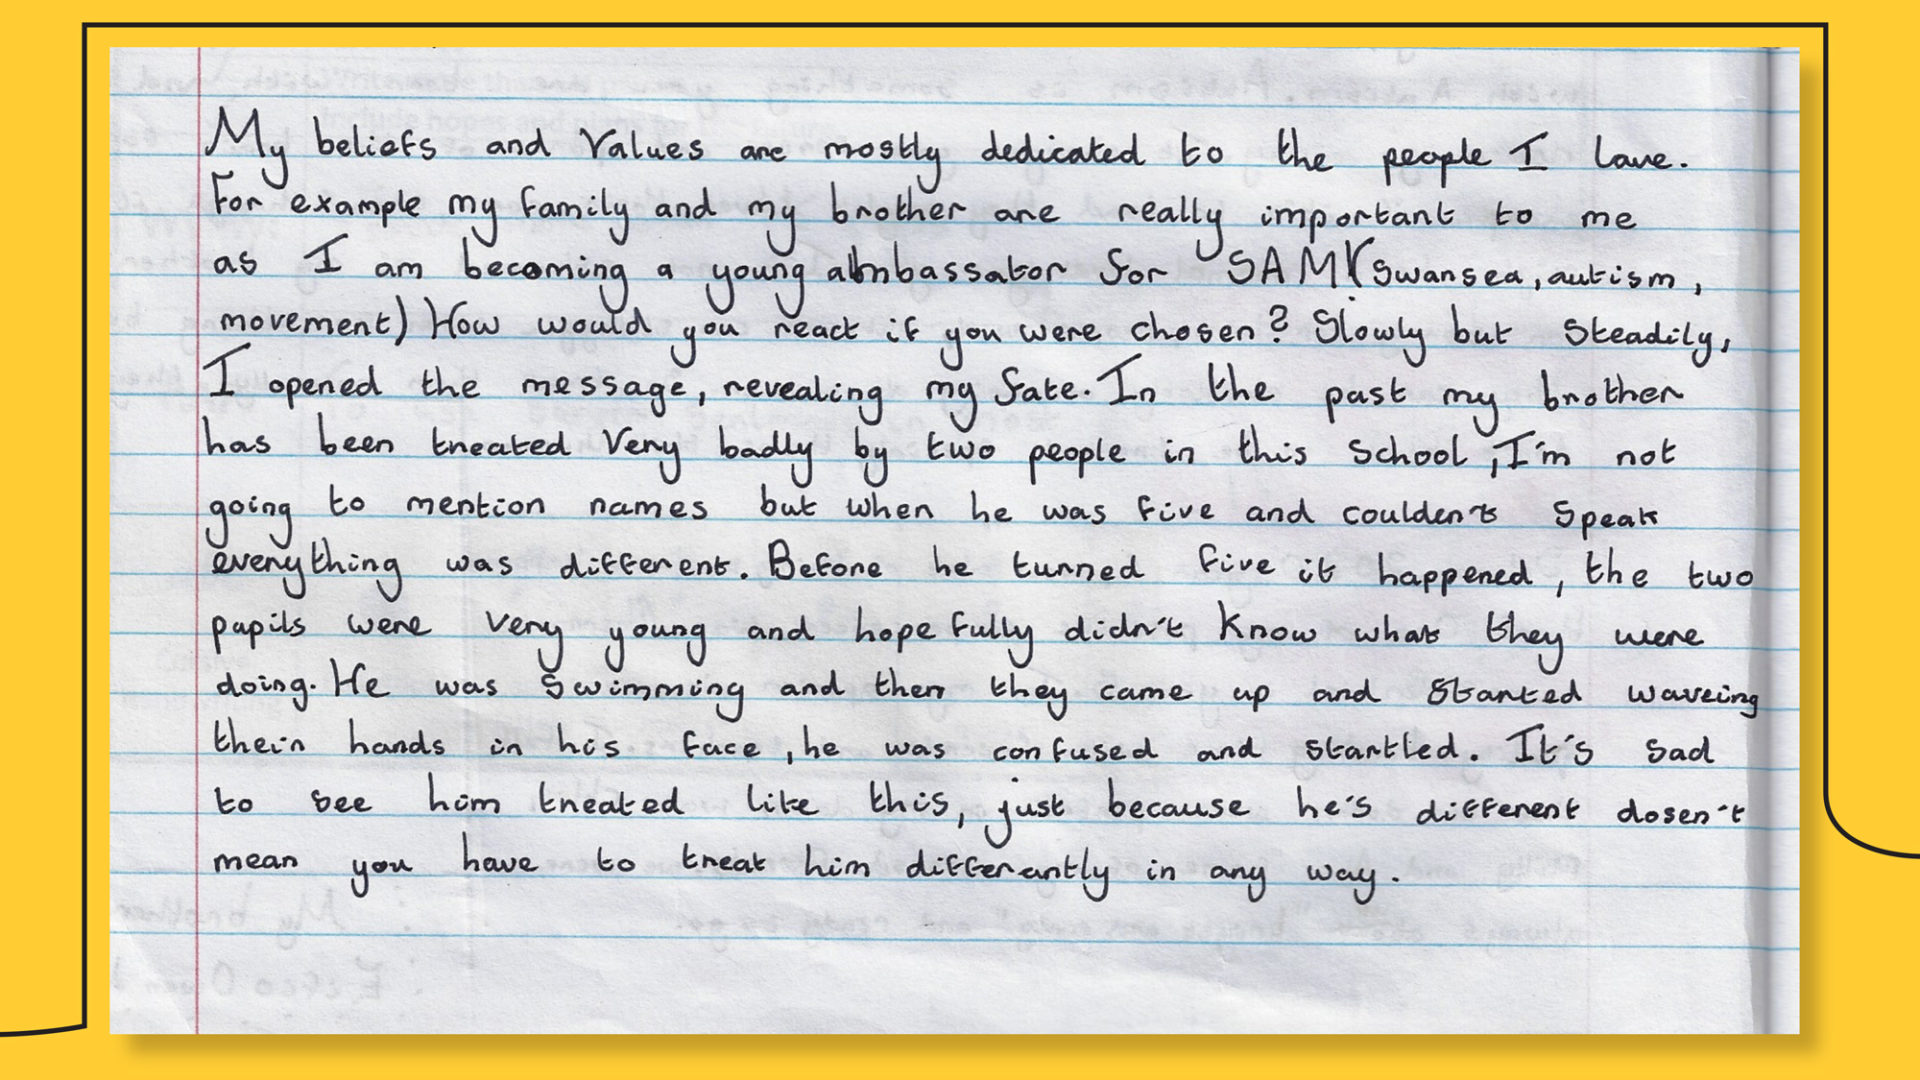 My beliefs and values are mostly dedicated to the people I love.
For example my family and my brother are really important to me
as I am becoming a young ambassator for SAM (Swansea, autism,
movement) How would you react if you were chosen? Slowly but steadily,
I opened the message, revealing my fate. In the past my brother
has been treated very badly by two people in this school, I'm not
going to mention names but when he was five and coulden't speak
everything was different. Before he turned five it happened, the two
pupils were very young and hopefully didn't know what they were
doing. He was swimming and then they came up and started waveing
their hands in his face, he was confused and startled. It's sad
to see him treated like this, just because he's different dosen't
mean you have to treat him differantly in any way.